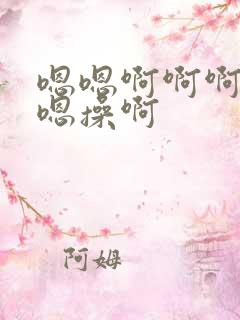 嗯嗯啊啊啊
嗯操啊
阿姆